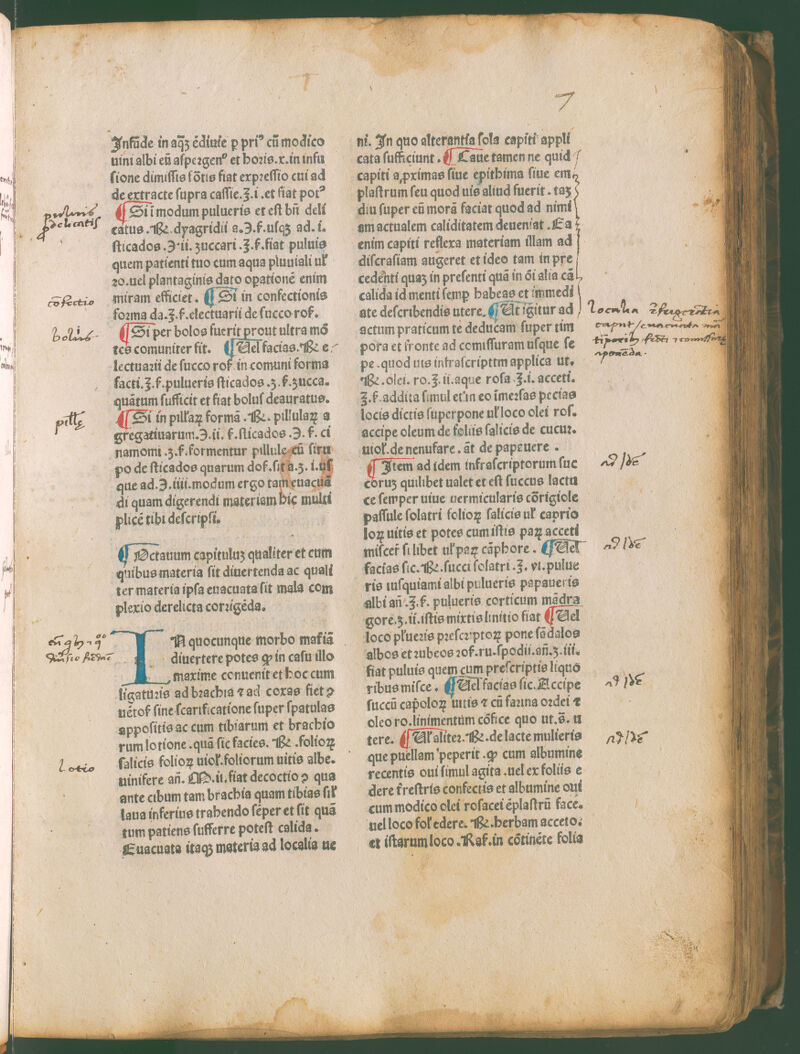 7
Infūde in aq̄ʒ ēdiuie p priꝰ cū modico
uini albi eū aſpergenꝰ et horis.x.in infu
ſione dimiſſis fōtis fiat expreſſio cui ad
de extracte ſupra caſſie.ʒ.i.et fiat potꝰ
¶ Si i modum pulueris et eſt bn̄ deli
catus.℞.dyagridii a.Ə.ſ.uſqʒ ad.i.
ſticados.Ə.ii.zuccari.ʒ.ſ.fiat puluis
quem patienti tuo cum aqua pluuiali ul̕
ro.uel plantaginis dato opationē enim
miram efficiet. ¶ Si in confectionis
forma da.ʒ.ſ.electuarii de ſucco roſ.
¶ Si per bolos fuerit prout ultra mō
tes comuniter fit. ¶ Uel facias.℞ e
lectuarii de ſucco roſ in comuni forma
facti.ʒ.ſ.pulueris ſticados.ʒ.ſ.zucca.
quātum ſufficit et fiat boluſ deauratus.
¶ Si in pill'aꝝ formā.℞. pillulaꝝ a
gregatiuarum.Ə.ii. ſ.ſticados.Ə.ſ.ci
namomi.ʒ.ſ.formentur pillule cū ſiru
po de ſticados quarum doſ.ſit a.ʒ.i.uſ
que ad.Ə.iiii.modum ergo tam euacuā
di quam digerendi materiam hic multi
plicē tibi deſcripſi.
¶ Octauum capituluʒ qualiter et cum
quibus materia ſit diuertenda ac quali
ter materia ipſa euacuata ſit mala com
plexio derelicta corrigēda.
IN quocunque morbo mat̄iā
diuertere potes ꝙ in caſu illo
maxime conuenit et hoc cum
ligaturis ad brachia ⁊ ad coxas fiet ꝯ
uētoſ ſine ſcarificatione ſuper ſpatulas
appoſitis ac cum tibiarum et brachio
rum lotione.quā ſic facies.℞.folioꝝ
ſalicis folioꝝ uiol̕.foliorum uitis albe.
uinifere an̄.M.ii.fiat decoctio ꝯ qua
ante cibum tam brachia quam tibias ſil̕
laua inferius trahendo ſēper et ſit quā
tum patiens ſufferre poteſt calida.
Euacuata itaqʒ materia ad localia ue
ni. In quo alterantia ſola capiti appli
cata ſufficiunt. ¶ Caue tamen ne quid
capiti aproximas ſiue epithima ſiue em
plaſtrum ſeu quod uis aliud fuerit.taʒ
diu ſuper eū morā faciat quod ad nimi
am actualem caliditatem deueniat.Ea
enim capiti reflexa materiam illam ad
diſcraſiam augeret et ideo tam in pre
cedēti quaʒ in preſenti quā in ōi alia cā
calida id menti ſemp habeas et immedi
ate deſcribendis utere. ¶ Ut igitur ad
actum praticum te deducam ſuper tim
pora et fronte ad comiſſuram uſque ſe
pe.quod uis infraſcriptrm applica ut.
℞.olei.ro.ʒ.ii.aque roſa.ʒ.i.aceti.
ʒ.ſ.addita ſimul et in eo īmerſas pecias
locis dictis ſuperpone ul̕ loco olei roſ.
accipe oleum de foliis ſalicis de cucur.
uiol̕.de nenufare.āt de papuere.
¶ Item ad idem infraſcriptorum ſuc
coruʒ quilibet ualet et eſt ſuccus lactu
ce ſemper uiue uermicularis cōrigiole
paſſule ſolatri folioꝝ ſalicis ul̕ caprio
loꝝ uitis et potes cum iſtis paꝝ acceti
miſceṙ ſi libet ul̕ paꝝ cāphore. ¶ Uel
facias ſic.℞.ſucci ſolatri.ʒ.vi.pulue
ris iuſquiami albi pulueris papaueris
albi an̄.ʒ.ſ.pulueris corticum mādra
gore.ʒ.ii.iſtis mixtis linitio fiat ¶ Uel
loco pl'ueris preſcriptoꝝ pone ſādalos
albos et rubeos roſ.ru.ſpodii.an̄.ʒ.iii.
fiat puluis quem cum preſcriptis liquo
ribus miſce. ¶ Uel facias ſic.Accipe
ſuccū cap̄oloꝝ uitis ⁊ cū farina ordei ⁊
oleo ro.linimentum cōfice quo ut.s̄. u
tere. ¶ Ul̕ aliter.℞.de lacte mulieris
que puellam peperit.ꝙ cum albumine
recentis oui ſimul agita.uel ex foliis e
dere t̄reſtris confectis et albumine oui
cum modico olei roſacei ēplaſtrū face.
uel loco fol̕ edere.℞.herbam acceto.
et iſtarum loco.Raſ.in cōtinēte folia
pulueris
cōfectio
bolus
pille
Lotio